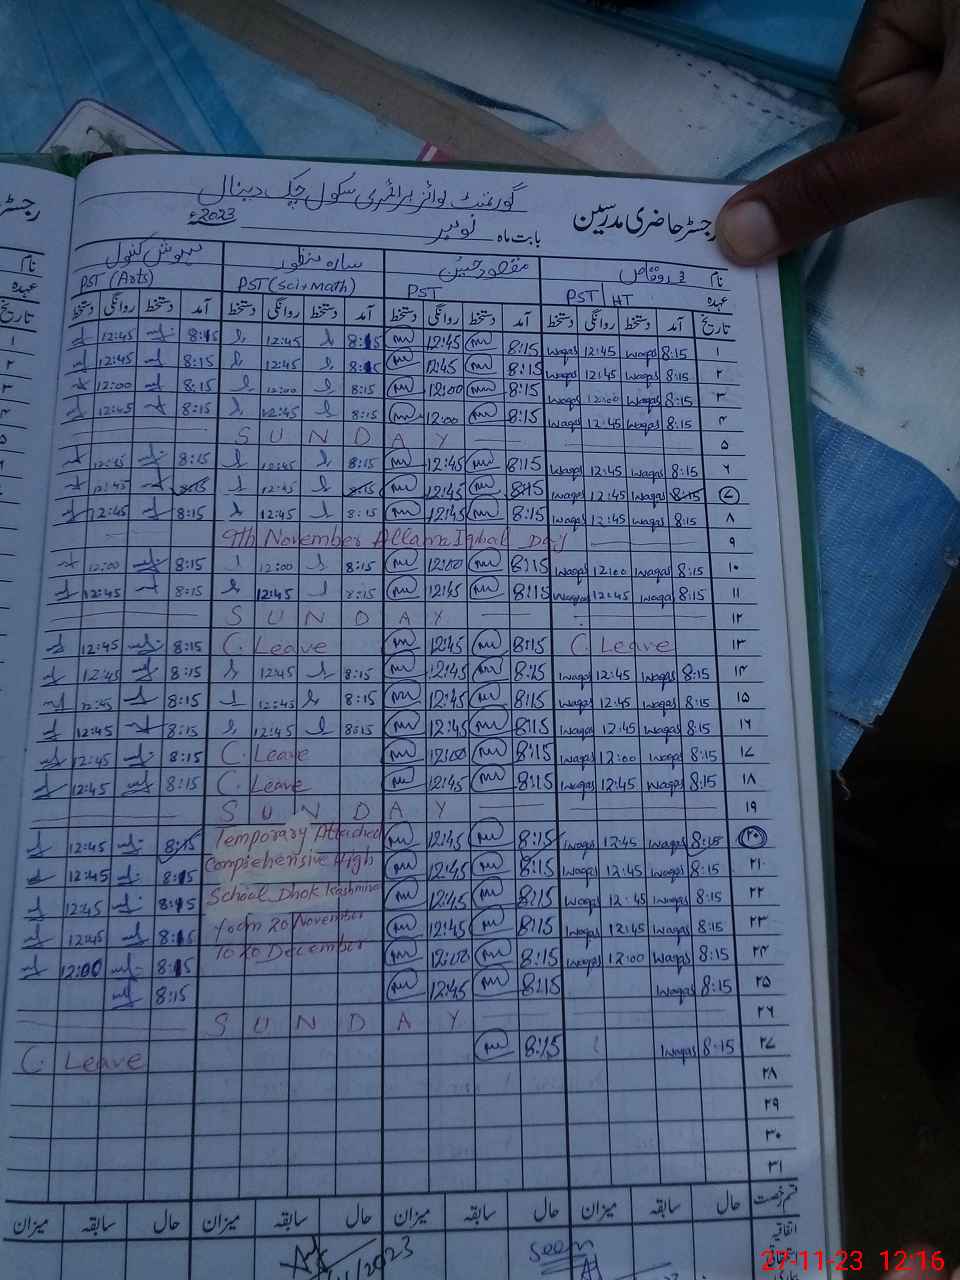 رجسٹر حاضری مدرسین گورنمنٹ بوائز پرائمری سکول چک دینال
بابت ماہ نومبر 2023ء
نام مقصود حسین سارہ منظور
عہدہ PST HT PST PST (sci+Math) PST (Arts)
تاریخ آمد دستخط روانگی دستخط آمد دستخط روانگی دستخط آمد دستخط روانگی دستخط آمد دستخط روانگی دستخط
۱ 8:15 waqas 12:45 waqas 8:15 12:45 8:15 12:45 8:15 12:45
۲ 8:15 waqas 12:45 waqas 8:15 12:45 8:15 12:45 8:15 12:45
۳ 8:15 waqas 12:00 waqas 8:15 12:00 8:15 12:00 8:15 12:00
۴ 8:15 waqas 12:45 waqas 8:15 12:00 8:15 12:45 8:15 12:45
۵ SUNDAY
۶ 8:15 waqas 12:45 waqas 8:15 12:45 8:15 12:45 8:15 12:45
۷ 8:15 waqas 12:45 waqas 8:15 12:45 8:15 12:45 8:15 12:45
۸ 8:15 waqas 12:45 waqas 8:15 12:45 8:15 12:45 8:15 12:45
۹ 9th November Allama Iqbal Day
۱۰ 8:15 waqas 12:00 waqas 8:15 12:00 8:15 12:00 8:15 12:00
۱۱ 8:15 waqas 12:45 waqas 8:15 12:45 8:15 12:45 8:15 12:45
۱۲ SUNDAY
۱۳ C. Leave 8:15 12:45 C. Leave 8:15 12:45
۱۴ 8:15 waqas 12:45 waqas 8:15 12:45 8:15 12:45 8:15 12:45
۱۵ 8:15 waqas 12:45 waqas 8:15 12:45 8:15 12:45 8:15 12:45
۱۶ 8:15 waqas 12:45 waqas 8:15 12:45 8:15 12:45 8:15 12:45
۱۷ 8:15 waqas 12:00 waqas 8:15 12:00 C. Leave 8:15 12:45
۱۸ 8:15 waqas 12:45 waqas 8:15 12:45 C. Leave 8:15 12:45
۱۹ SUNDAY
۲۰ 8:15 waqas 12:45 waqas 8:15 12:45 Temporary Attached 8:15 12:45
۲۱ 8:15 waqas 12:45 waqas 8:15 12:45 Comprehensive High 8:15 12:45
۲۲ 8:15 waqas 12:45 waqas 8:15 12:45 School Dhok Kashmina 8:15 12:45
۲۳ 8:15 waqas 12:45 waqas 8:15 12:45 from 20 November 8:15 12:45
۲۴ 8:15 waqas 12:00 waqas 8:15 12:00 To 20 December 8:15 12:00
۲۵ 8:15 waqas 8:15 12:45 8:15
۲۶ SUNDAY
۲۷ 8:15 waqas 8:15 C. Leave
۲۸
۲۹
۳۰
۳۱
قسم رخصت حال سابقہ میزان حال سابقہ میزان حال سابقہ میزان حال سابقہ میزان
اتفاقیہ
Seen
/2023
27-11-23 12:16